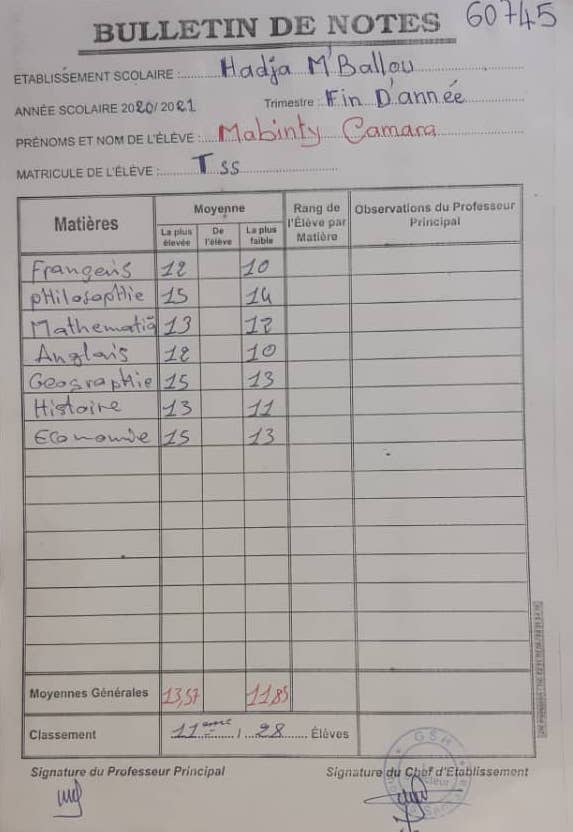 60745
BULLETIN DE NOTES
ETABLISSEMENT SCOLAIRE : Hadja M'Ballou
ANNÉE SCOLAIRE 2020/ 2021 Trimestre : Fin D'année
PRÉNOMS ET NOM DE L'ÉLÈVE : Mabinty Camara
MATRICULE DE L'ÉLÈVE : Tss
Matières Moyenne Rang de l'Élève par Matière Observations du Professeur Principal
La plus élevée De l'élève La plus faible
Françeris 12 10
philosophie 15 14
Mathematiq 13 12
Anglais 12 10
Geographie 15 13
Histoire 13 11
Economie 15 13
Moyennes Générales 13,57 11,85
Classement 11ème / 28 Élèves
Signature du Professeur Principal Signature du Chef d'Etablissement